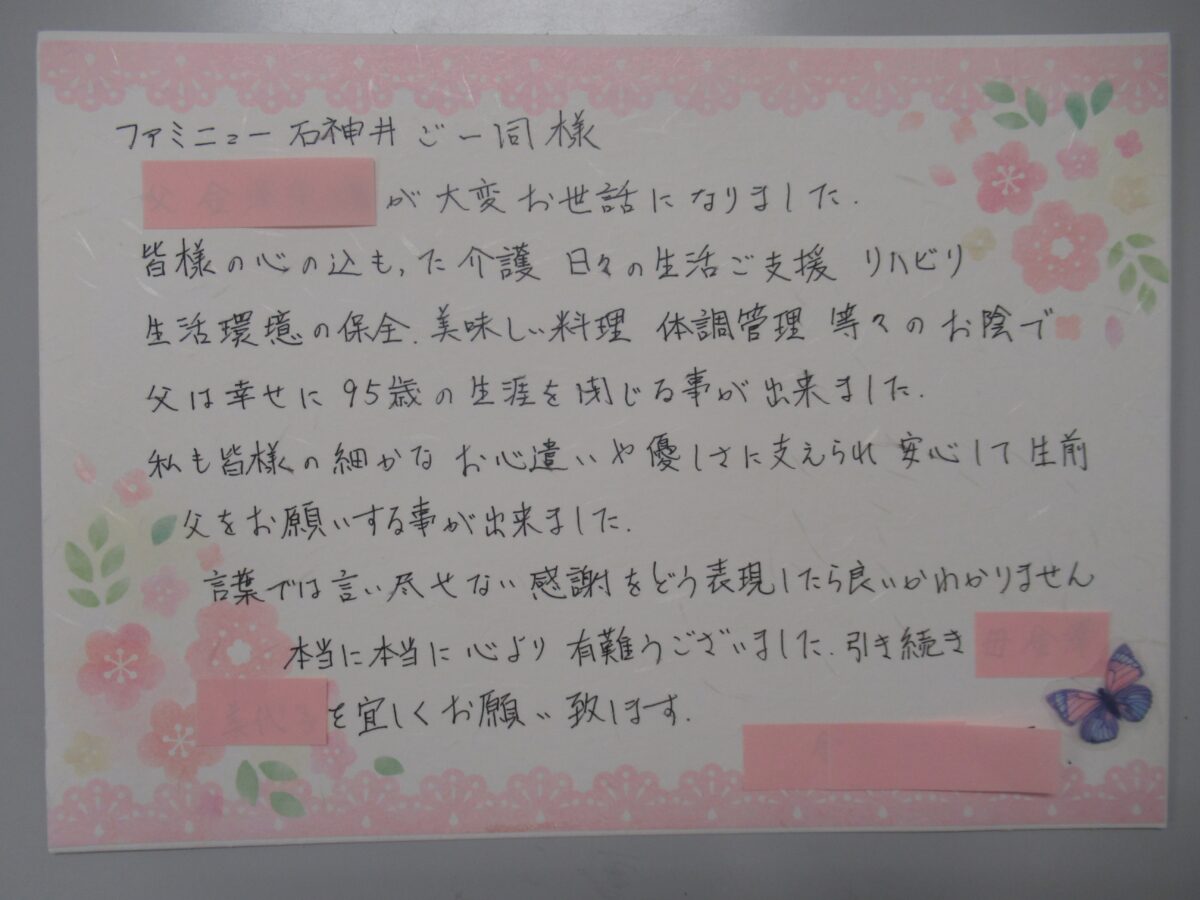 ファミニュー石神井ご一同様
が大変お世話になりました.
皆様の心の込もった介護 日々の生活ご支援 リハビリ
生活環境の保全. 美味しい料理 体調管理 等々のお陰で
父は幸せに95歳の生涯を閉じる事が出来ました.
私も皆様の細かなお心遣いや優しさに支えられ安心して生前
父をお願いする事が出来ました.
言葉では言い尽せない感謝をどう表現したら良いかわかりません
本当に本当に心より有難うございました. 引き続き
を宜しくお願い致します.